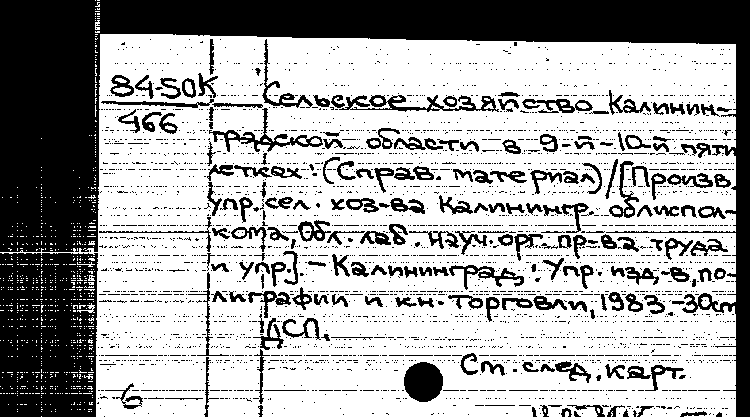 84-50К
466
Сельское хозяйство Калинин-
градской области в 9-й-10-й пяти
летках: (Справ. материал)/[Произв.
упр. сел. хоз-ва Калинингр. облиспол-
кома, Обл. лаб. науч. орг. пр-ва труда
и упр.]. - Калининград,: Упр. изд-в, по-
лиграфии и кн. торговли, 1983.-30см
ДСП.
См. след. карт.
6